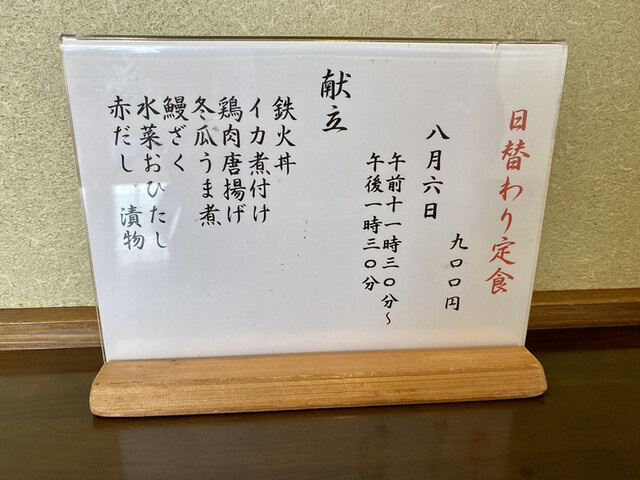 日替わり定食
九〇〇円
八月六日
午前十一時三〇分～
午後一時三〇分
献立
鉄火丼
イカ煮付け
鶏肉唐揚げ
冬瓜うま煮
鰻ざく
水菜おひたし
赤だし、漬物